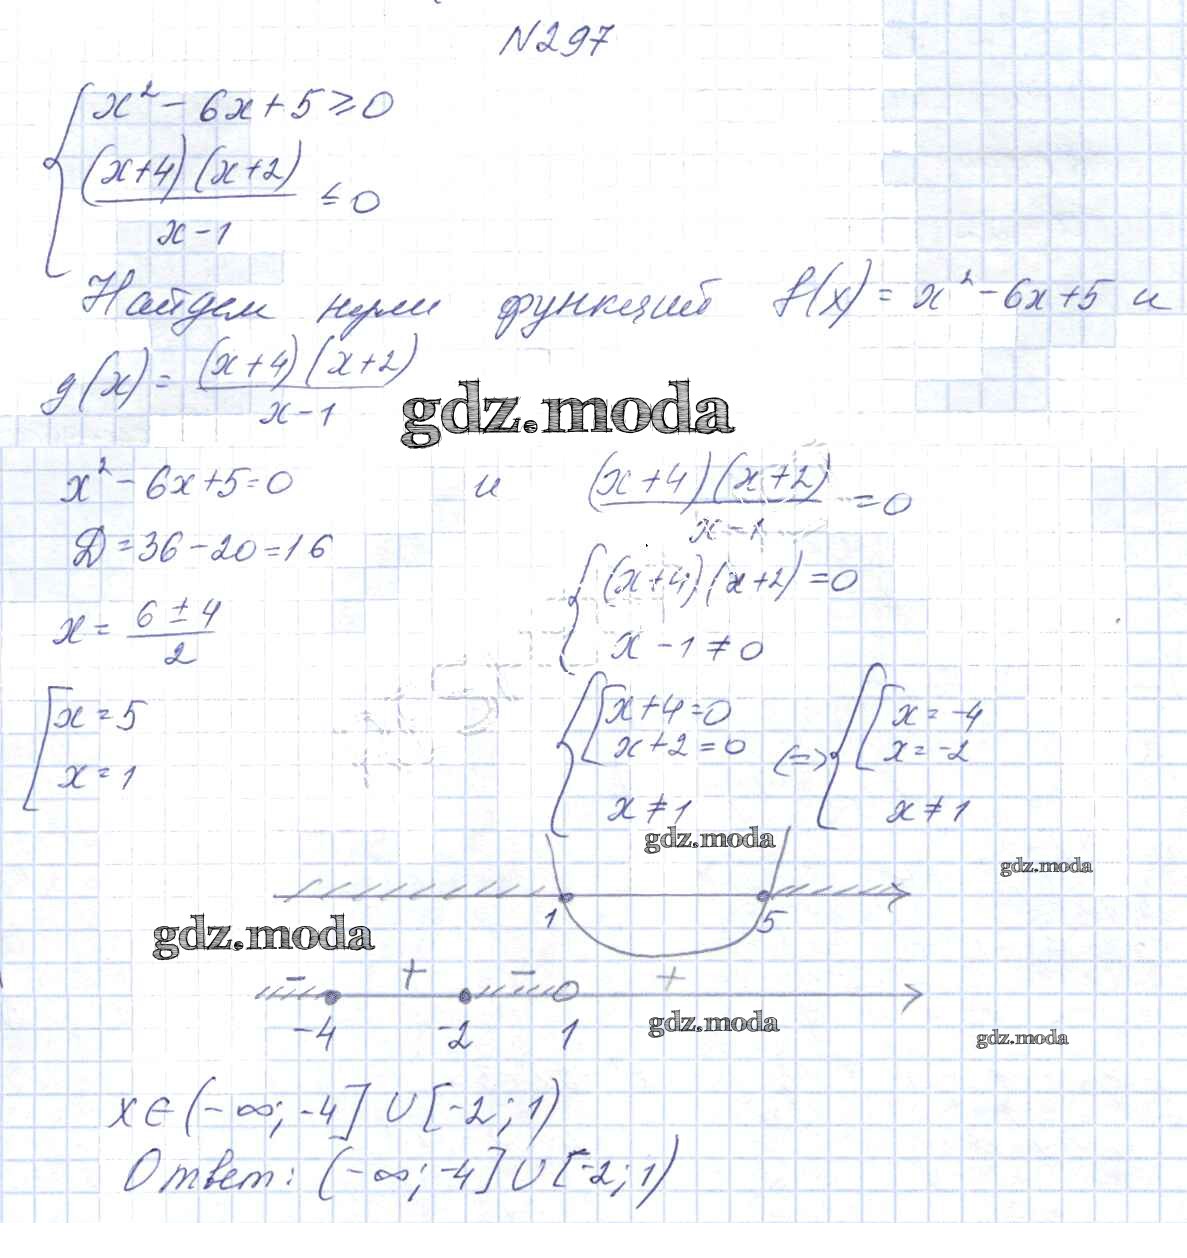 N297
x² - 6x + 5 ≥ 0
(x+4)(x+2)
≤ 0
x-1
Найдем нули функций f(x) = x² - 6x + 5 и
g(x) = (x+4)(x+2)
x-1
gdz.moda
x² - 6x + 5 = 0 и (x+4)(x+2) = 0
x-1
D = 36 - 20 = 16
(x+4)(x+2) = 0
x = 6 ± 4
2
x - 1 ≠ 0
x = 5
x+4=0 x = -4
x+2=0 (=) x = -2
x = 1
x ≠ 1 x ≠ 1
gdz.moda
gdz.moda
1 5
gdz.moda
- + - +
-4 -2 1
gdz.moda
gdz.moda
x ∈ (-∞; -4] ∪ [-2; 1)
Ответ: (-∞; -4] ∪ [-2; 1)